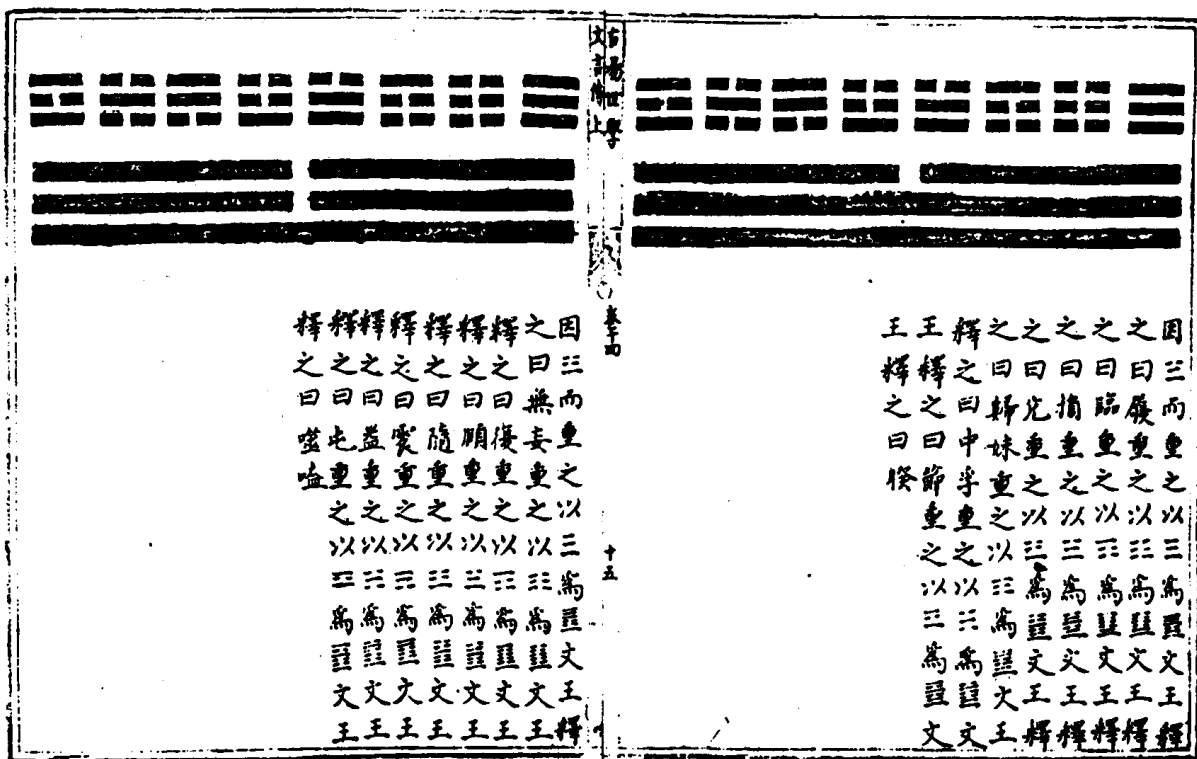 因☱而重之以☰爲䷉文王釋
之曰履重之以☷爲䷒文王釋
之曰臨重之以☶爲䷨文王釋
之曰損重之以☱爲䷹文王釋
之曰兌重之以☳爲䷵文王釋
之曰歸妹重之以☴爲䷼文王
釋之曰中孚重之以☵爲䷻文
王釋之曰節重之以☲爲䷥文
王釋之曰睽
古易世學
文言傳上
十五
因☳而重之以☰爲䷘文王釋
之曰無妄重之以☷爲䷗文王
釋之曰復重之以☶爲䷚文王
釋之曰頤重之以☱爲䷐文王
釋之曰隨重之以☳爲䷲文王
釋之曰震重之以☴爲䷩文王
釋之曰益重之以☵爲䷂文王
釋之曰屯重之以☲爲䷔文王
釋之曰噬嗑